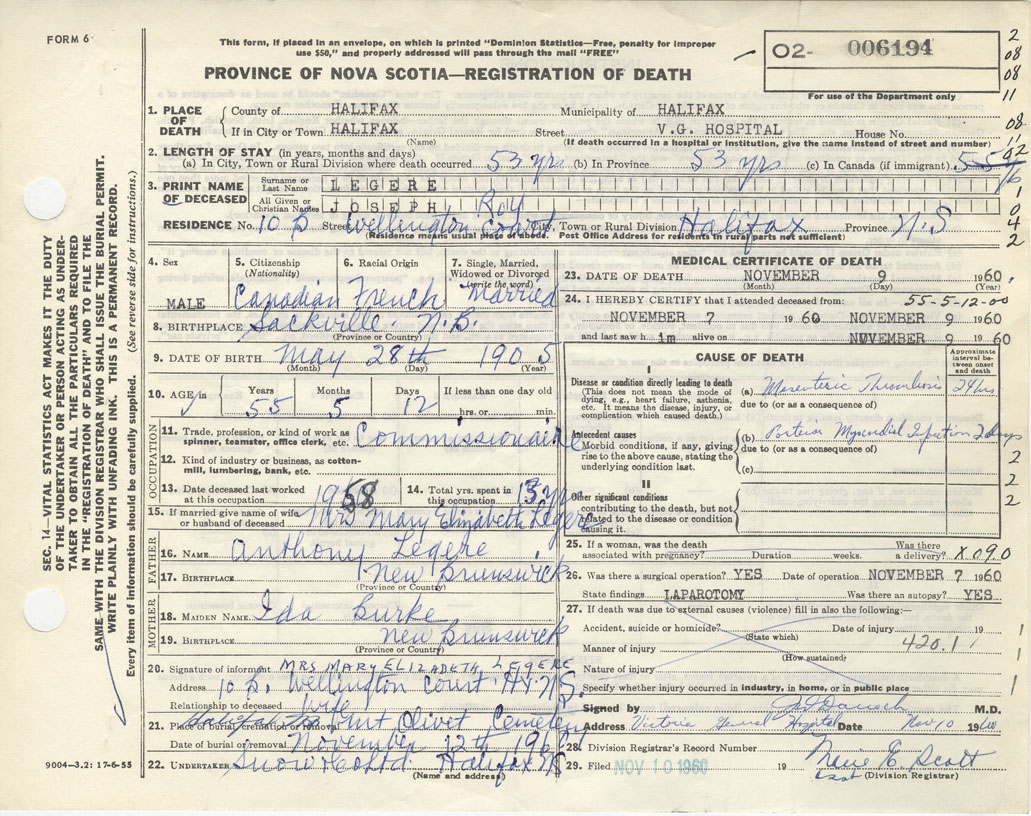 FORM 6
This form, if placed in an envelope, on which is printed "Dominion Statistics—Free, penalty for improper
use $50," and properly addressed will pass through the mail "FREE"
O2- 006194
For use of the Department only
2
08
08
11
PROVINCE OF NOVA SCOTIA—REGISTRATION OF DEATH
1. PLACE OF DEATH
County of HALIFAX Municipality of HALIFAX
If in City or Town HALIFAX Street V.G. HOSPITAL House No.
(Name) (If death occurred in a hospital or institution, give the name instead of street and number)
08
2. LENGTH OF STAY (in years, months and days)
(a) In City, Town or Rural Division where death occurred 53 yrs (b) In Province 53 yrs (c) In Canada (if immigrant)
3. PRINT NAME OF DECEASED
Surname or Last Name LEGERE
All Given or Christian Names JOSEPH Roy
1
0
4
2
RESIDENCE No. 10 D Street Wellington Court City, Town or Rural Division Halifax Province N.S
(Residence means usual place of abode. Post Office Address for residents in rural parts not sufficient)
4. Sex MALE
5. Citizenship (Nationality) Canadian
6. Racial Origin French
7. Single, Married, Widowed or Divorced (write the word) Married
8. BIRTHPLACE Sackville. N.B.
(Province or Country)
9. DATE OF BIRTH May 28th 1905
(Month) (Day) (Year)
10. AGE in Years 55 Months 5 Days 12 If less than one day old hrs. or min.
OCCUPATION
11. Trade, profession, or kind of work as spinner, teamster, office clerk, etc. Commissionaire
12. Kind of industry or business, as cotton-mill, lumbering, bank, etc.
13. Date deceased last worked at this occupation 1958
14. Total yrs. spent in this occupation 13 yrs
15. If married give name of wife or husband of deceased Mrs Mary Elizabeth Legere
FATHER
16. NAME Anthony Legere
17. BIRTHPLACE New Brunswick
(Province or Country)
MOTHER
18. MAIDEN NAME Ida Burke
19. BIRTHPLACE New Brunswick
(Province or Country)
20. Signature of informant MRS MARY ELIZABETH LEGERE
Address 10 D. Wellington Court. Hx. N.S.
Relationship to deceased Wife
21. Place of burial, cremation or removal Mt Olivet Cemetery
Date of burial or removal November 12th 1960
22. UNDERTAKER Snow & Co Ltd. Halifax NS
(Name and address)
MEDICAL CERTIFICATE OF DEATH
23. DATE OF DEATH NOVEMBER 9 1960.
(Month) (Day)
24. I HEREBY CERTIFY that I attended deceased from: 55-5-12-00
NOVEMBER 7 1960 NOVEMBER 9 1960
and last saw h im alive on NOVEMBER 9 1960
CAUSE OF DEATH
Approximate interval between onset and death
I
Disease or condition directly leading to death
(This does not mean the mode of dying, e.g., heart failure, asthenia, etc. It means the disease, injury, or complication which caused death.)
(a) Mesenteric Thrombosis 24 hrs
due to (or as a consequence of)
Antecedent causes
Morbid conditions, if any, giving rise to the above cause, stating the underlying condition last.
(b) Myocardial 2 days
due to (or as a consequence of)
(c)
2
2
2
II
Other significant conditions
contributing to the death, but not related to the disease or condition causing it.
25. If a woman, was the death associated with pregnancy? Duration weeks. Was there a delivery? X090
26. Was there a surgical operation? YES Date of operation NOVEMBER 7 1960
State findings LAPAROTOMY Was there an autopsy? YES
27. If death was due to external causes (violence) fill in also the following:—
Accident, suicide or homicide? Date of injury 19
(State which)
Manner of injury 420.1
(How sustained)
Nature of injury
Specify whether injury occurred in industry, in home, or in public place
1
1
1
Signed by M.D.
Address Victoria General Hospital Date Nov 10 1960
28. Division Registrar's Record Number
29. Filed NOV 10 1960 19 Scott
(Division Registrar)
SEC. 14—VITAL STATISTICS ACT MAKES IT THE DUTY
OF THE UNDERTAKER OR PERSON ACTING AS UNDER-
TAKER TO OBTAIN ALL THE PARTICULARS REQUIRED
IN THE "REGISTRATION OF DEATH" AND TO FILE THE
SAME WITH THE DIVISION REGISTRAR WHO SHALL ISSUE THE BURIAL PERMIT.
WRITE PLAINLY WITH UNFADING INK. THIS IS A PERMANENT RECORD.
Every item of information should be carefully supplied. (See reverse side for instructions.)
9004—3.2: 17-6-55